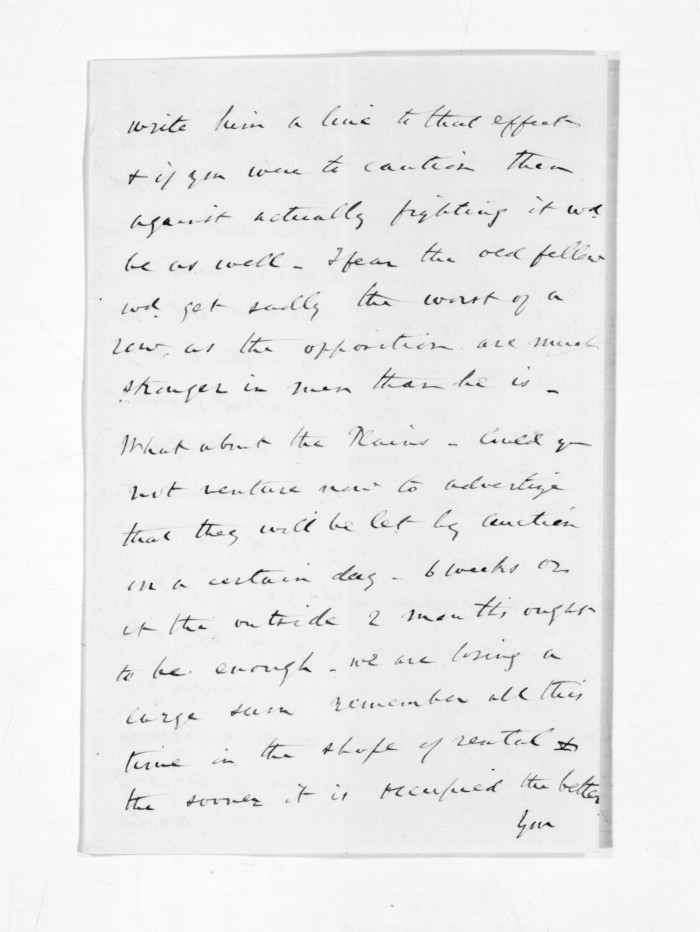 write him a line to that effect
& if you were to caution them
against actually fighting it wd.
be as well - I fear the old fellow
wd. get sadly the worst of a
row, as the opposition are much
stronger in men than he is -
What about the Plains - Could you
not venture now to advertize
that they will be let by auction
on a certain day - 6 weeks or
at the outside 2 months ought
to be enough - we are losing a
large sum remember all this
time in the shape of rental &
the sooner it is occupied the better
You